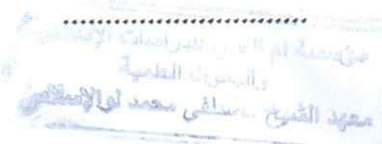 مؤسسة أم القرى للدراسات الإسلامية
والبحوث العلمية
معهد الشيخ مصطفى محمد نور الإسلامي